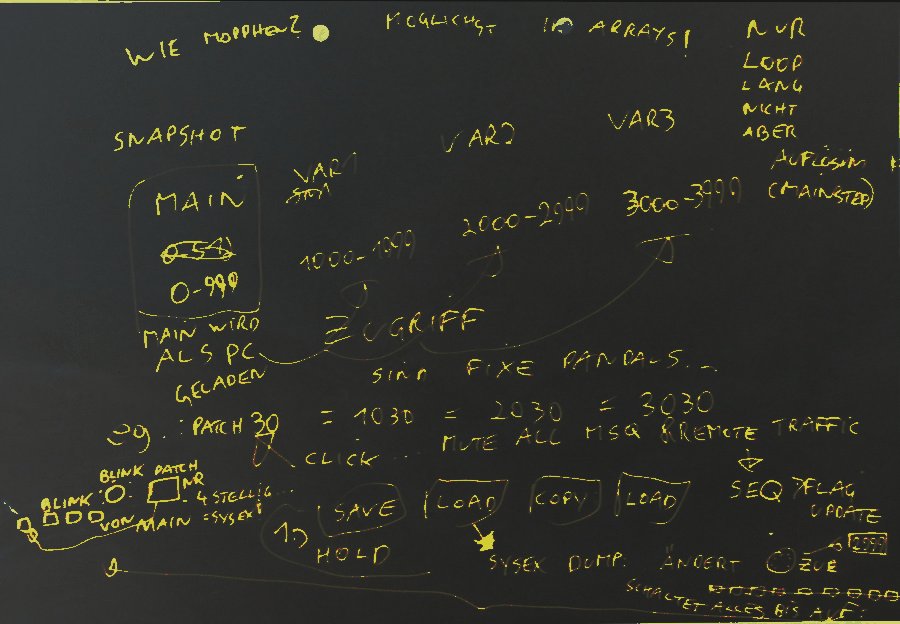 WIE MORPHEN? MÖGLICHST IN ARRAYS!
NUR
LOOP
LANG
NICHT
ABER
AUFLÖSEN
(MAINSTEP)
SNAPSHOT
VAR1
VAR2
VAR3
MAIN
0-999
1000-1999
2000-2999
3000-3999
MAIN WIRD
ALS PC
GELADEN
ZUGRIFF
SIND FIXE
eg. : PATCH 30 = 1030 = 2030 = 3030
CLICK... MUTE ALL MSQ & REMOTE TRAFFIC
BLINK PATCH
NR
BLINK
4 STELLIG...
VON MAIN = SYSEX!
SAVE LOAD COPY LOAD
SEQ > FLAG
UPDATE
HOLD
SYSEX DUMP. ÄNDERT
SCHALTET ALLES BIS AUF